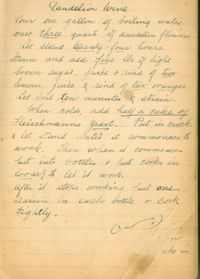 Dandelion Wine
Pour one gallon of boiling water
over three quarts of dandelion flowers
let stand twenty-four hours
strain and add five lbs of light
brown sugar. Juice & rind of two
lemons, juice & rind of two oranges
let boil ten minutes & strain.
When cold, add half a cake of
Fleischmanns yeast. Put in crock
& let stand until it commences to
work. Then when it commences
put into bottles & put corks in
loosely to let it work.
after it stops working put one
raisin in each bottle & cork
tightly.